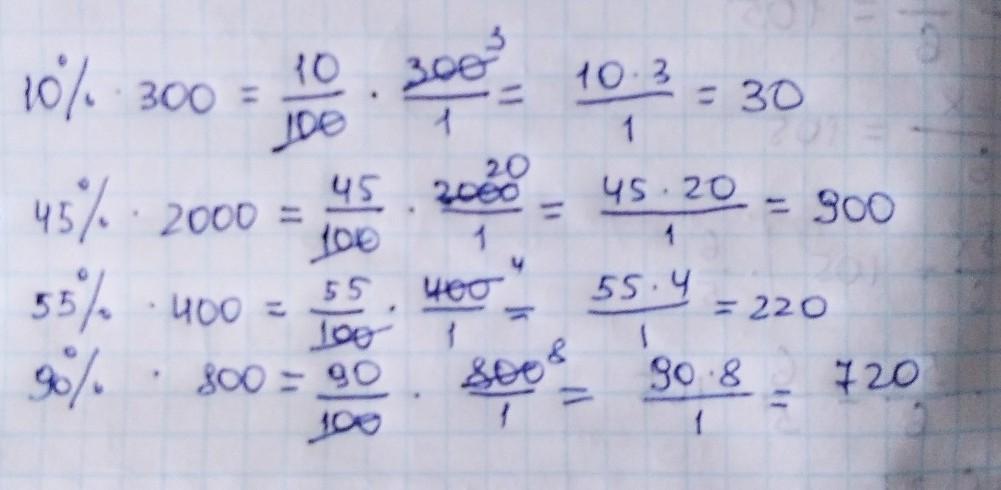 10% · 300 = 10/100 · 300/1 ³ = 10·3/1 = 30
45% · 2000 = 45/100 · 2000/1 20 = 45·20/1 = 900
55% · 400 = 55/100 · 400/1 ⁴ = 55·4/1 = 220
90% · 800 = 90/100 · 800/1 ⁸ = 90·8/1 = 720